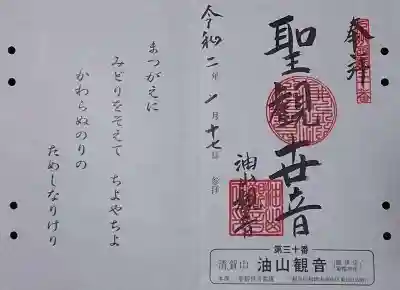 奉拝
聖観世音
油山観音
令和二年 月十七日 参拝
まつがえに
みどりをそえて ちよやちよ
かわらぬのりの
ためしなりけり
第三十番
清賀山 油山観音